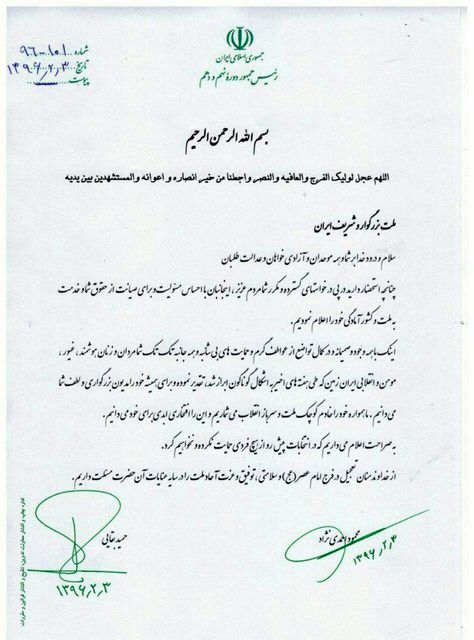 جمهوری اسلامی ایران
رئیس جمهور دوره نهم و دهم
شماره ۹۶-۱۰۱
تاریخ ۱۳۹۶٫۲٫۳
پیوست
بسم الله الرحمن الرحیم
اللهم عجل لولیک الفرج والعافیه والنصر واجعلنا من خیر انصاره و اعوانه والمستشهدین بین یدیه
ملت بزرگوار و شریف ایران
سلام و درود خدا بر شما و همه موحدان و آزادی خواهان و عدالت طلبان
چنانچه استحضار دارید در پی درخواستهای گسترده و مکرر شما مردم عزیز، اینجانبان با احساس مسئولیت و برای صیانت از حقوق شما و خدمت
به ملت و کشور آمادگی خود را اعلام نمودیم.
اینک با همه وجود و صمیمانه و در کمال تواضع از عواطف گرم و حمایت های بی شائبه و همه جانبه تک تک شما مردان و زنان هوشمند، غیور،
مومن و انقلابی ایران زمین که طی هفته های اخیر به اشکال گوناگون ابراز شد، تقدیر نموده و برای همیشه خود را مدیون بزرگواری و لطف شما
می دانیم. ما همواره خود را خادم کوچک ملت و سرباز انقلاب می شماریم و این را افتخاری ابدی برای خود می دانیم.
به صراحت اعلام می داریم که در انتخابات پیش رو از هیچ فردی حمایت نکرده و نخواهیم کرد.
از خداوند منان تعجیل در فرج امام عصر (عج) و سلامتی، توفیق و عزت آحاد ملت را در سایه عنایات آن حضرت مسئلت داریم.
محمود احمدی نژاد
۱۳۹۶٫۲٫۳
حمید بقایی
۱۳۹۶٫۲٫۳
چاپ و انتشار معاونت تدوین، تنقیح و انتشار قوانین و مقررات